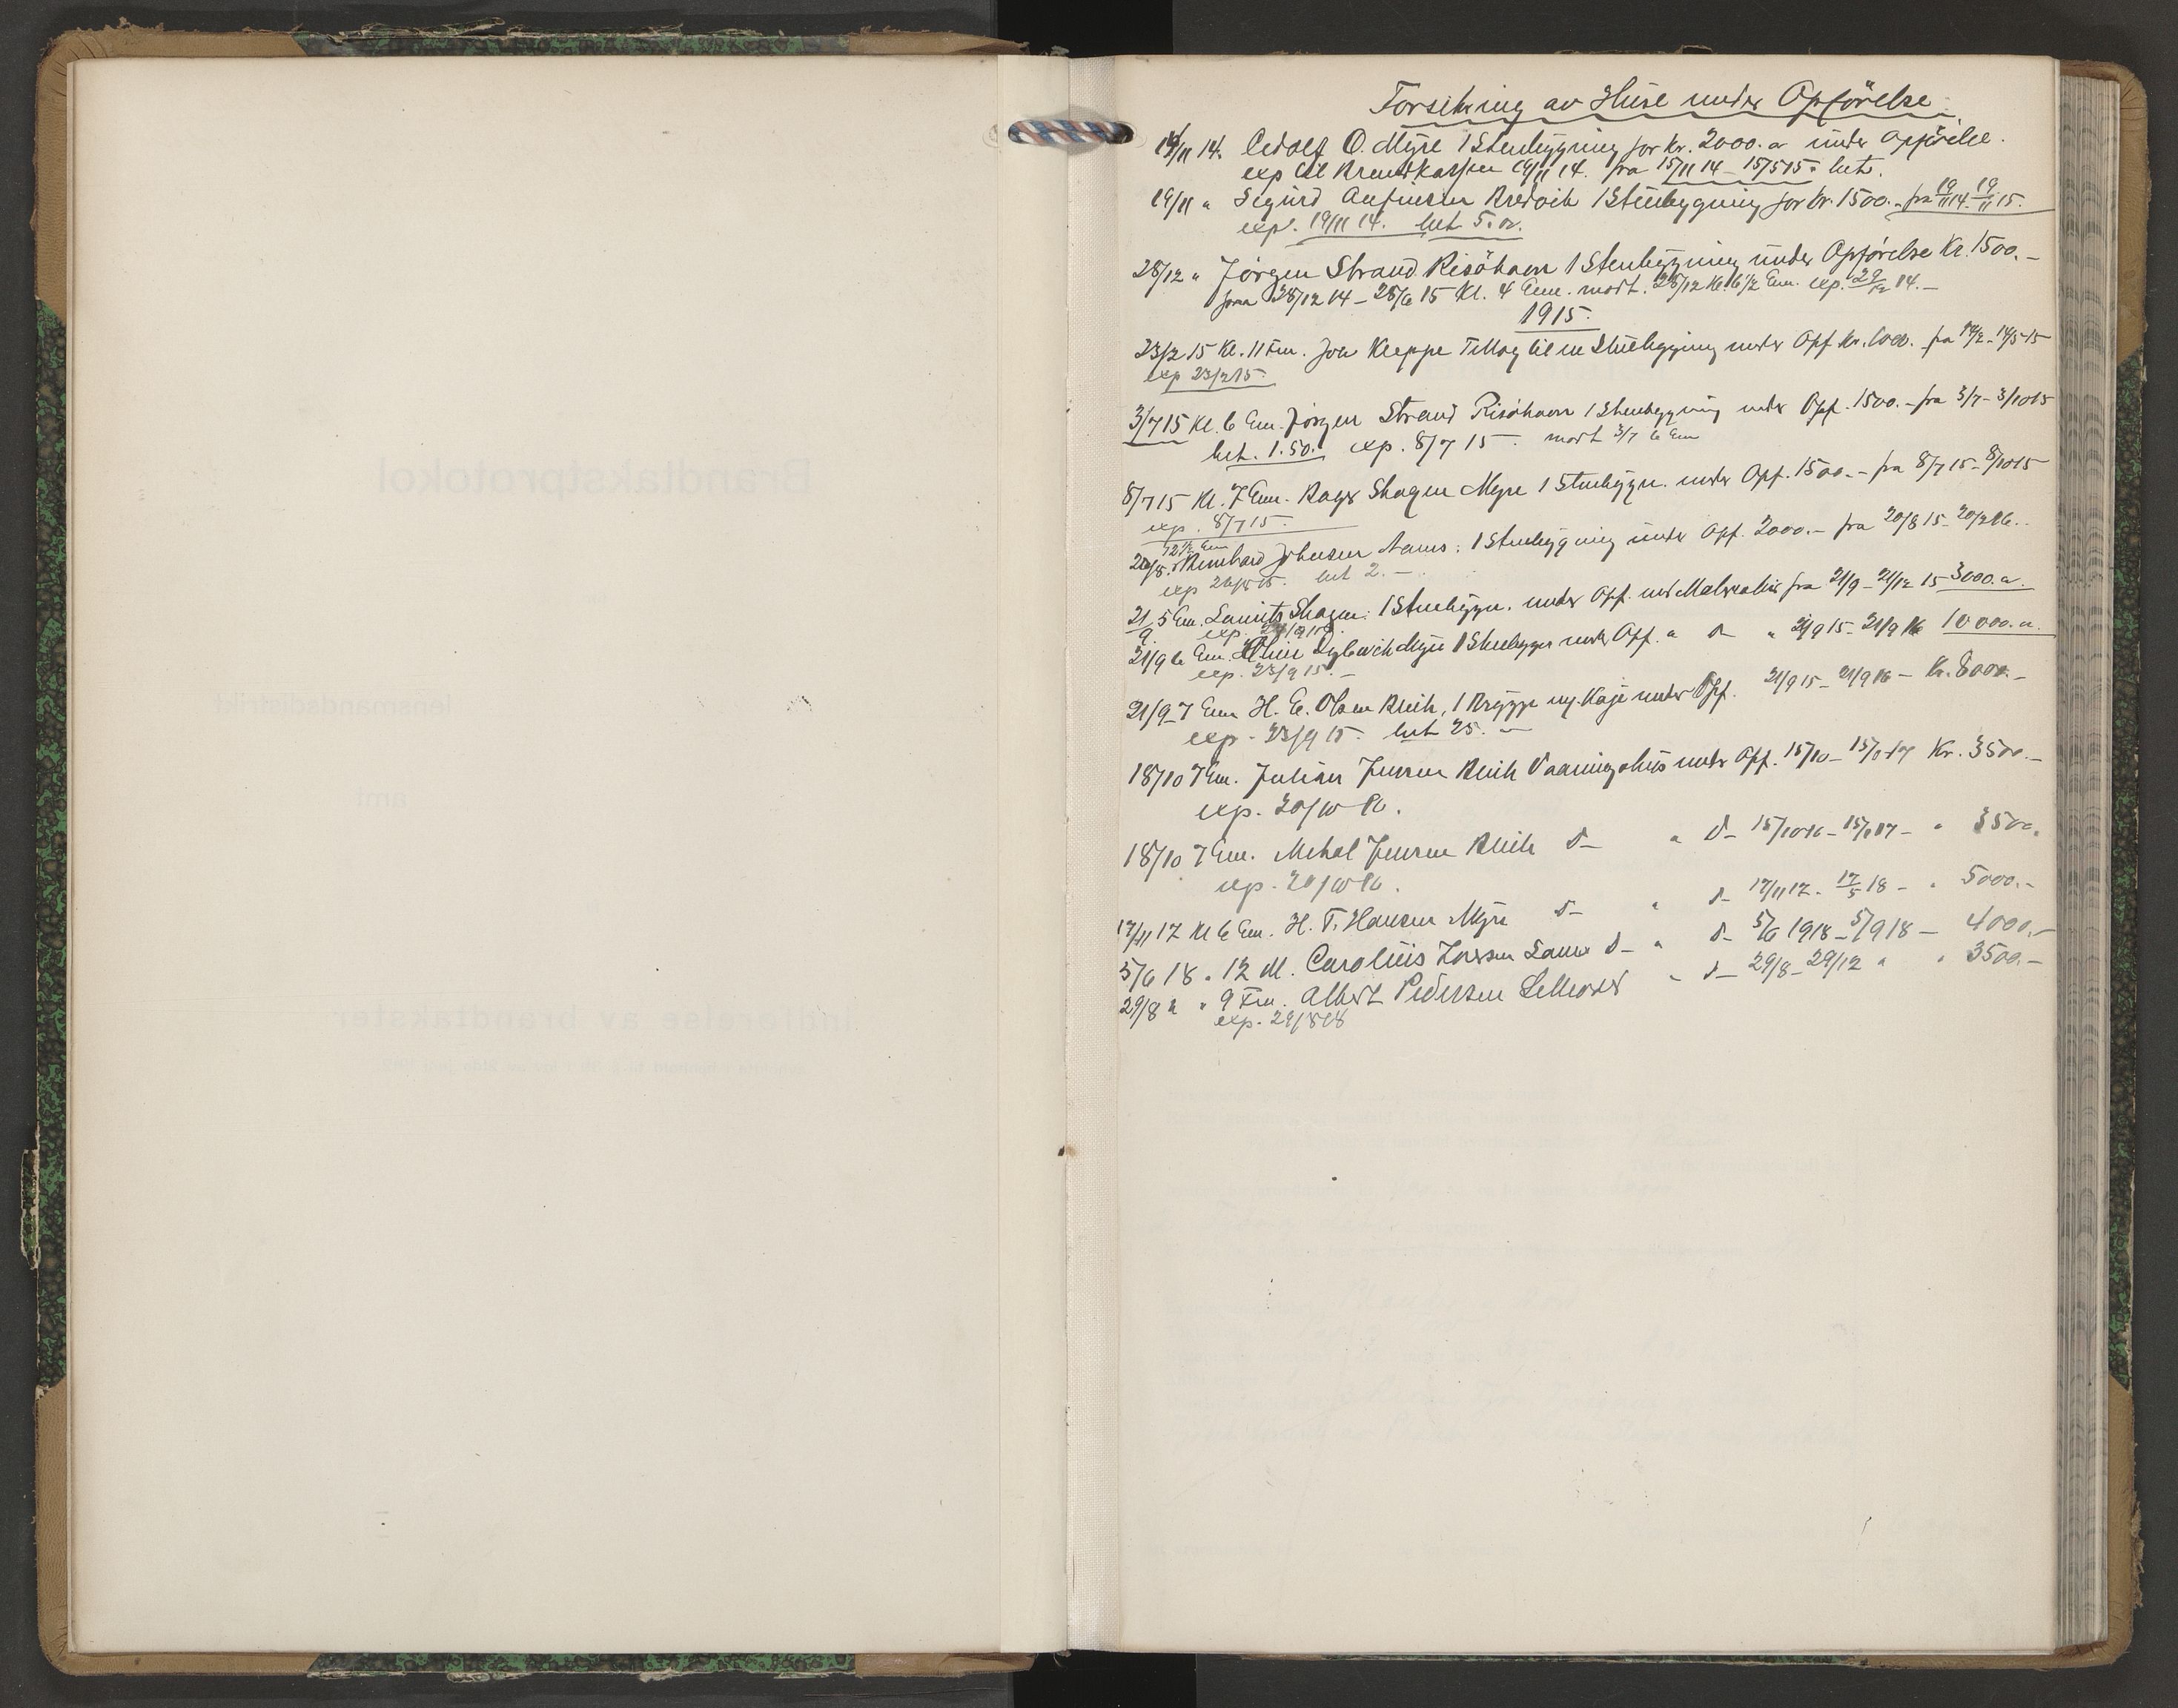 Forsikring av Huse under Opförelse.
19/11 14. Adolf O. Myre 1 Stenbygning for kr. 2000.00 under Opförelse.
exp til Brandkassen 19/11 14. fra 15/11 14 - 15/5 15. bet.
19/11 " Sigurd Anfinsen Bredvik 1 Stuebygning for kr. 1500.- fra 19/11 14 - 19/11 15.
exp. 19/11 14. bet 5.00.
28/12 " Jörgen Strand Risöhavn 1 Stenbygning under Opförelse Kr. 1500.-
fraa 28/12 14 - 28/6 15 Kl. 4 Em. mott. 28/12 Kl. 6 1/2 Em. exp. 29/12 14.-
1915.
23/2 15 Kl. 11 Fm. Joa Kleppe Tillæg til en Stuebygning under Opf. Kr. 1000. fra 14/2 - 14/5 15
exp 23/2 15.
3/7 15 Kl. 6 Em. Jörgen Strand Risöhavn 1 Stuebygning under Opf. 1500.- fra 3/7 - 3/10 15
bet. 1.50. exp. 8/7 15. mott 3/7 6 Em
8/7 15 Kl. 7 Em. Roger Skagen Myre 1 Stuebygn. under Opf. 1500.- fra 8/7 15 - 8/10 15
exp. 8/7 15.
12 1/2 Em
20/8. Reinhard Johnsen Aanes. 1 Stuebygning under Opf. 2000.- fra 20/8 15 - 20/2 16.
exp 26/8 15. bet 2.-
21/9. 5 Em. Lauritz Skagen: 1 Stuebygn. under Opf. med Materialier fra 21/9 - 21/12 15 3000.00
exp. 23/9 15.
21/9 6 Em. Myre 1 Stuebygn under Opf. " d- " 21/9 15 - 21/9 16 10000.00
exp. 23/9 15.-
21/9 7 Em H. E. Olsen Bleik, 1 Brygge og Kaje under Opf. 21/9 15 - 21/9 16 - Kr. 8000.-
exp. 23/9 15. bet 25.-
18/10 7 Em. Julian Jensen Bleik Vaaningshus under Opf. 15/10 - 15/1 17 Kr. 3500.-
exp. 20/10 16.
18/10 7 Em. Mekal Jensen Bleik d- " d- 15/10 16 - 15/1 17 - " 3500.
exp. 20/10 16.
17/11 17 Kl 6 Em. H. T. Hansen Myre d- " d- 17/11 17 - 17/5 18 - " 5000.-
5/6 18 " 12 M. Carolius Larsen d- " d- 5/6 1918 - 5/9 18 - 4000.-
29/8 " " 9 Fm. Albert Pedersen " d- 29/8 - 29/12 " " 3500.-
exp. 29/8 18
Brandtakstprotokol
lensmandsdistrikt
amt
Indførelse av brandtakster